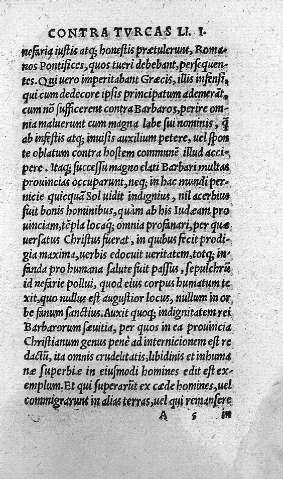 CONTRA TVRCAS LI. I.
nefaria iustis atq; honestis prætulerunt, Roma-
nos Pontifices, quos tueri debebant, persequen-
tes. Qui uero imperitabant Græcis, illis infensi,
qui cum dedecore ipsis principatum ademerāt,
cum nō sufficerent contra Barbaros, perire om-
nia maluerunt cum magna labe sui nominis, q̄
ab infestis atq; inuisis auxilium petere, uel spon
te oblatum contra hostem communē. illud acci-
pere. Itaq; successu magno elati Barbari multas
prouincias occuparunt, neq; in hac mundi per-
nicie quicquā Sol uidit indignius, nil acerbius
fuit bonis hominibus, quàm ab his Iudæam pro
uinciam, tēpla locaq; omnia profanari, per quæ
uersatus Christus fuerat, in quibus fecit prodi-
gia maxima, uerbis edocuit ueritatem, totq; in-
fanda pro humana salute fuit passus, sepulchrū
id nefarie pollui, quod eius corpus humatum te
xit, quo nullus est augustior locus, nullum in or
be fanum sanctius. Auxit quoq; indignitatem rei
Barbarorum sæuitia, per quos in ea prouincia
Christianum genus penè ad internicionem est re
dactū, ita omnis crudelitatis, libidinis et inhuma
næ superbiæ in eiusmodi homines edit est ex-
emplum. Et qui superarūt ex cæde homines, uel
commigrarunt in alias terras, uel qui remansere
A 5 in